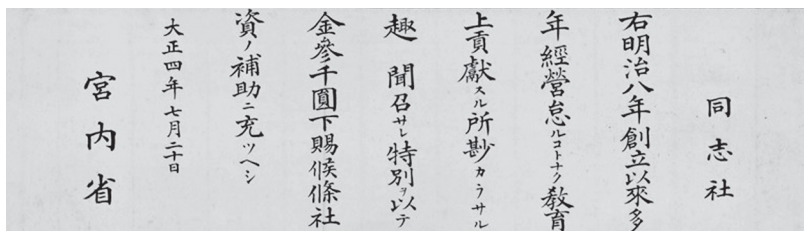 同志社
右明治八年創立以來多
年經營怠ルコトナク教育
上貢獻スル所尠カラサル
趣聞召サレ特別ヲ以テ
金參千圓下賜候條社
資ノ補助ニ充ツヘシ
大正四年七月二十日
宮内省